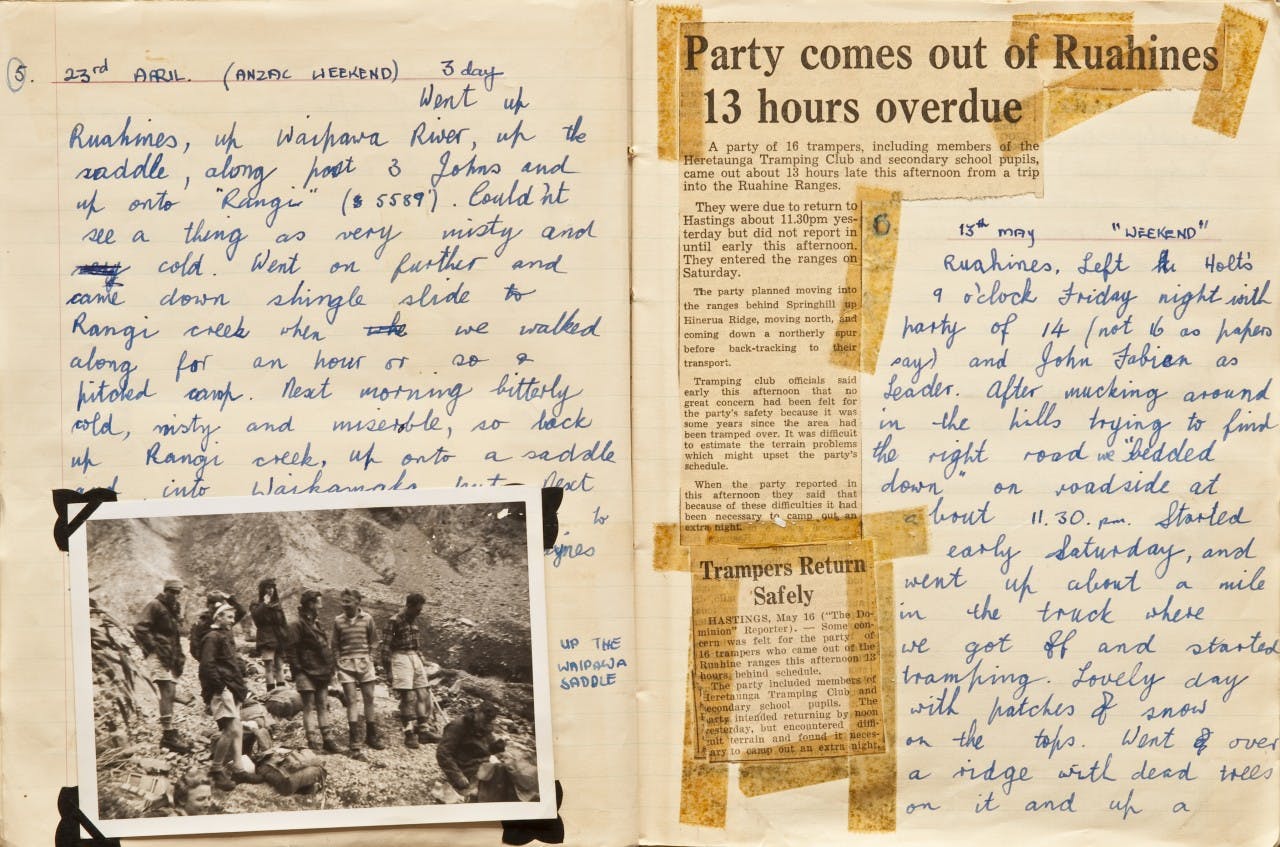 5. 23rd APRIL. (ANZAC WEEKEND) 3 day
Went up
Ruahines, up Waipawa River, up the
saddle, along past 3 Johns and
up onto "Rangi" (5589'). Could'nt
see a thing as very misty and
cold. Went on further and
came down shingle slide to
Rangi creek when we walked
along for an hour or so &
pitched camp. Next morning bitterly
cold, misty and miserble, so back
up Rangi creek, up onto a saddle
and into Waikamaka hut. Next
to
UP THE
WAIPAWA
SADDLE
Party comes out of Ruahines
13 hours overdue
A party of 16 trampers, including members of the
Heretaunga Tramping Club and secondary school pupils,
came out about 13 hours late this afternoon from a trip
into the Ruahine Ranges.
They were due to return to
Hastings about 11.30pm yes-
terday but did not report in
until early this afternoon.
They entered the ranges on
Saturday.
The party planned moving into
the ranges behind Springhill up
Hinerua Ridge, moving north, and
coming down a northerly spur
before back-tracking to their
transport.
Tramping club officials said
early this afternoon that no
great concern had been felt for
the party's safety because it was
some years since the area had
been tramped over. It was difficult
to estimate the terrain problems
which might upset the party's
schedule.
When the party reported in
this afternoon they said that
because of these difficulties it had
been necessary to camp out an
extra night.
Trampers Return
Safely
HASTINGS, May 16 ("The Do-
minion" Reporter). — Some con-
cern was felt for the party of
16 trampers who came out of the
Ruahine ranges this afternoon 13
hours behind schedule.
The party included members of
Heretaunga Tramping Club and
secondary school pupils. The
party intended returning by noon
yesterday, but encountered diffi-
cult terrain and found it neces-
sary to camp out an extra night.
6
13th MAY "WEEKEND"
Ruahines. Left Holt's
9 o'clock Friday night with
party of 14 (not 16 as papers
say) and John Fabian as
Leader. After mucking around
in the hills trying to find
the right road we "bedded
down" on roadside at
about 11.30. pm. Started
early Saturday, and
went up about a mile
in the truck where
we got off and started
tramping. Lovely day
with patches of snow
on the tops. Went over
a ridge with dead trees
on it and up a